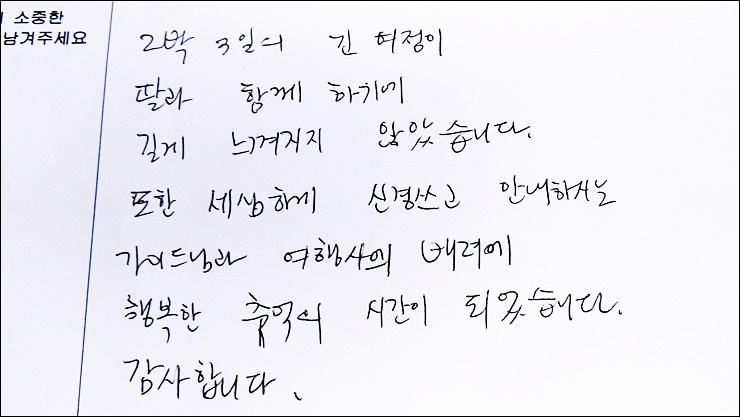 소중한
남겨주세요
2박 3일의 긴 여정이
딸과 함께 하기에
길게 느껴지지 않았습니다.
또한 세심하게 신경쓰고 안내하시는
가이드님과 여행사의 배려에
행복한 추억의 시간이 되었습니다.
감사합니다.